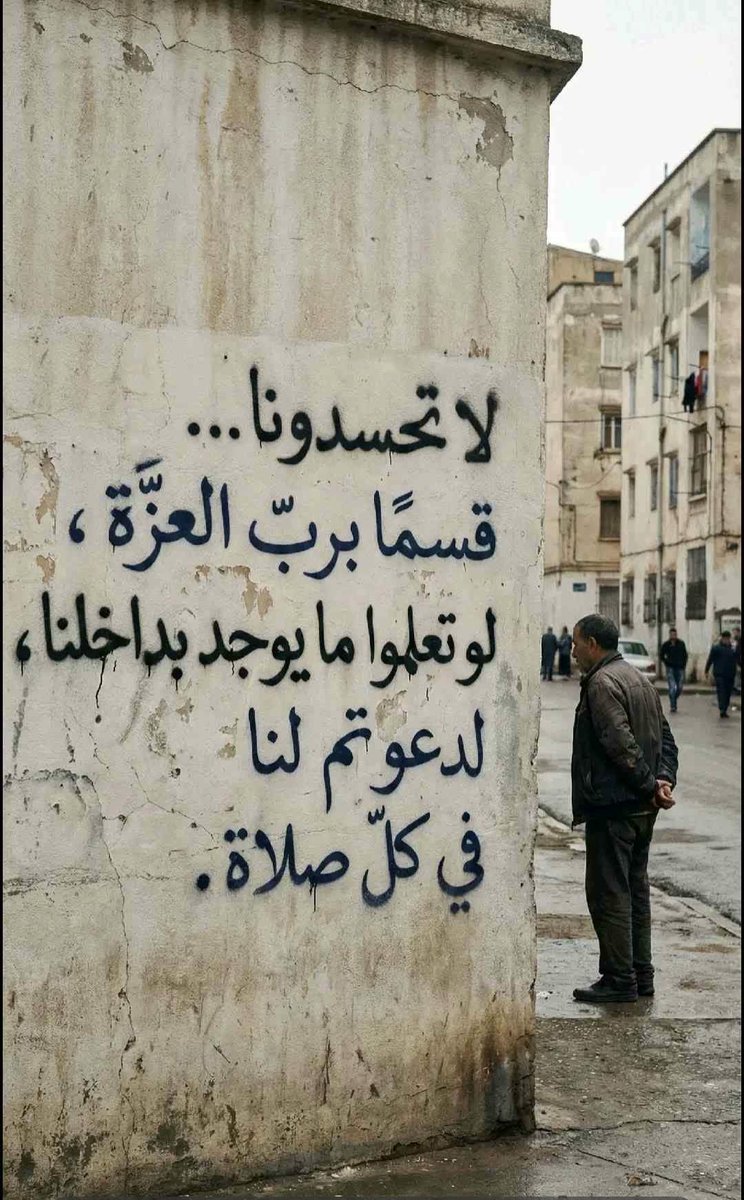 لا تحسدونا...
قسمًا بربّ العزَّة ،
لو تعلموا ما يوجد بداخلنا،
لدعوتم لنا
في كلّ صلاة.